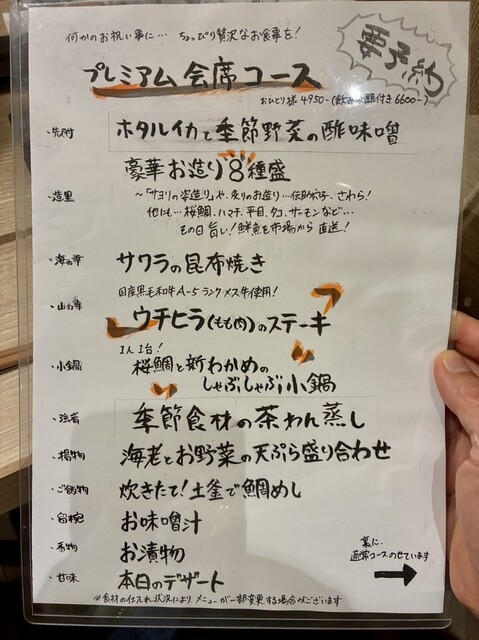 何かのお祝い事に… ちょっぴり贅沢なお食事を!
要予約
プレミアム会席コース
おひとり様 4950-(飲み放題付き 6600-)
・先付 ホタルイカと季節野菜の酢味噌
豪華お造り8種盛
・造里 ～「サヨリの姿造り」や、炙りのお造り…伝助穴子、さわら!
他にも…桜鯛、ハマチ、平目、タコ、サーモンなど…
その日旨い!鮮魚を市場から直送!
・海の幸 サワラの昆布焼き
国産黒毛和牛A-5ランクメス牛使用!
・山の幸 ウチヒラ(もも肉)のステーキ
1人1台!
・小鍋 桜鯛と新わかめの
しゃぶしゃぶ小鍋
・強肴 季節食材の茶わん蒸し
・揚物 海老とお野菜の天ぷら盛り合わせ
・ご飯物 炊きたて!土釜で鯛めし
・留椀 お味噌汁
・香物 お漬物
・甘味 本日のデザート
裏に、
通常コースのせています
※食材の仕入れ状況によりメニューが一部変更する場合がございます